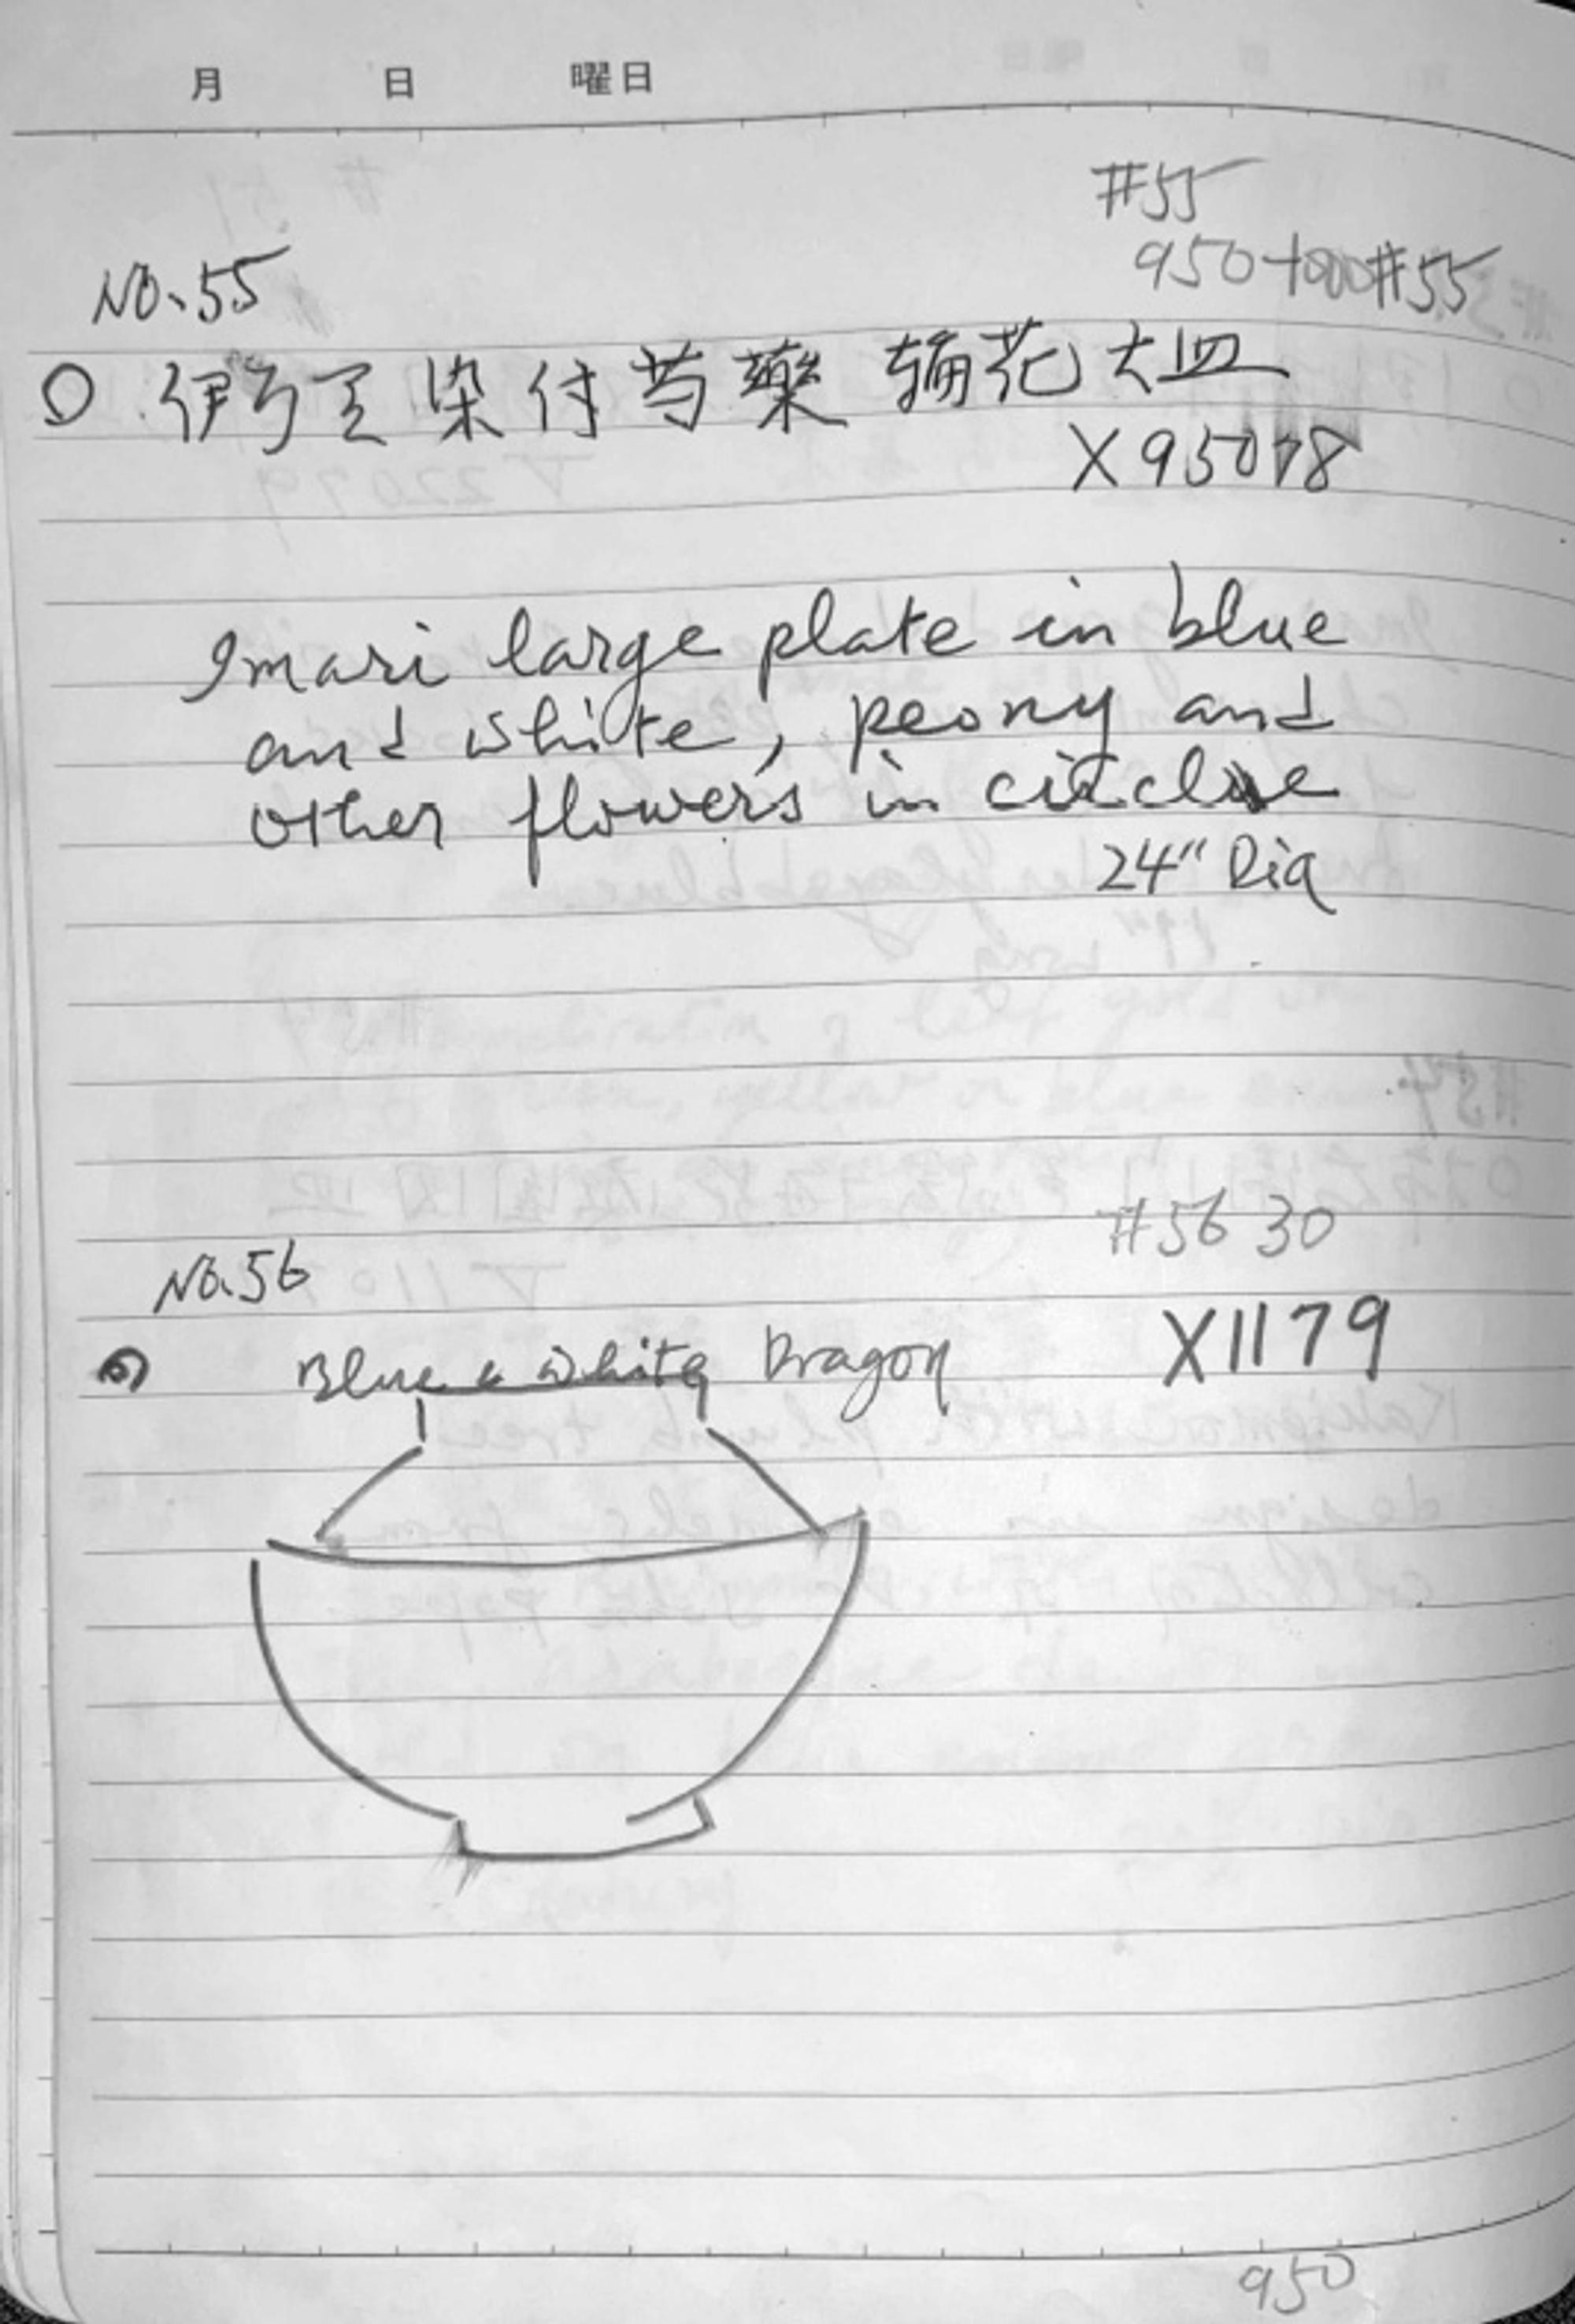 月 日 曜日
#55
950 #55
No.55
○ 伊万里染付芍薬 輪花大皿
X95078
Imari large plate in blue
and white, peony and
other flowers in circle
24" Dia
#56 30
No.56
X1179
Blue & White Dragon
950